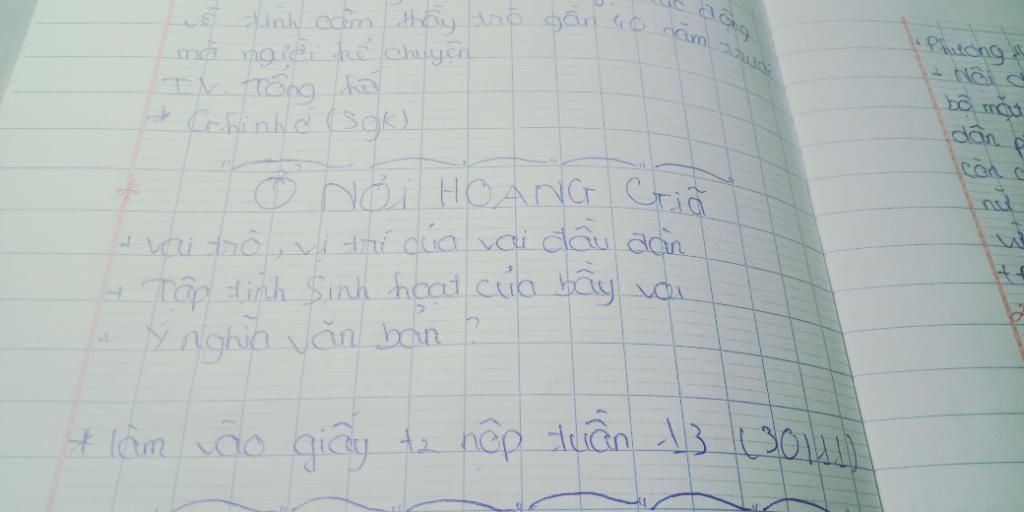 về tình cảm thầy trò gần 40 năm trước
mà người kể chuyện
IV. Tổng kết
* Ghi nhớ (SGK)
NƠI HOANG Giã
+ vai trò, vị trí của vai đầu đàn
+ Tập tính sinh hoạt của bầy voi
+ Ý nghĩa văn bản?
* Làm vào giấy t2 nộp tuần 13 (30/11)
Phương
+ Nơi
bộ mặt
dẫn
còn
nữ